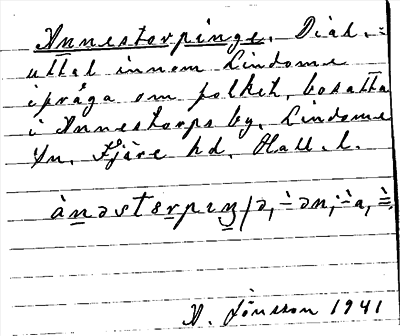 Annestorpinge. Dial.=
uttal innom Lindome
ifråga om folket, bosatta
i Annestorps by, Lindome
sn. Fjäre hd. Hall. l.
ànəstɛrpɪŋ/ə,
A. Jönsson 1941